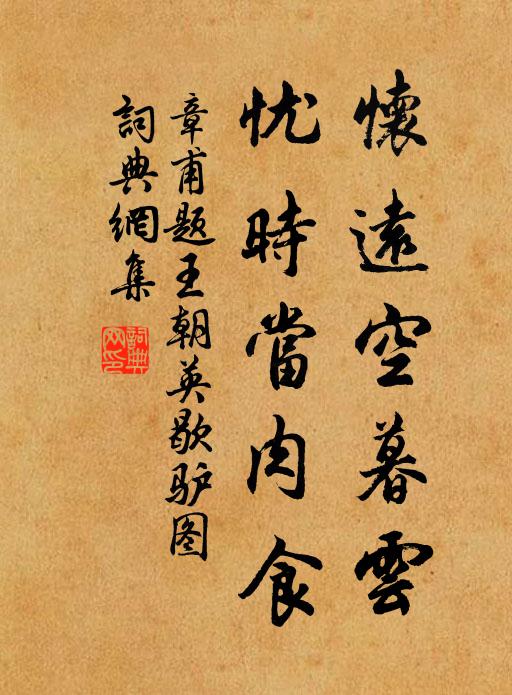 懷遠空暮雲
忧時當肉食
章甫題王朝英歇驴图
詞典網集
詞典網印